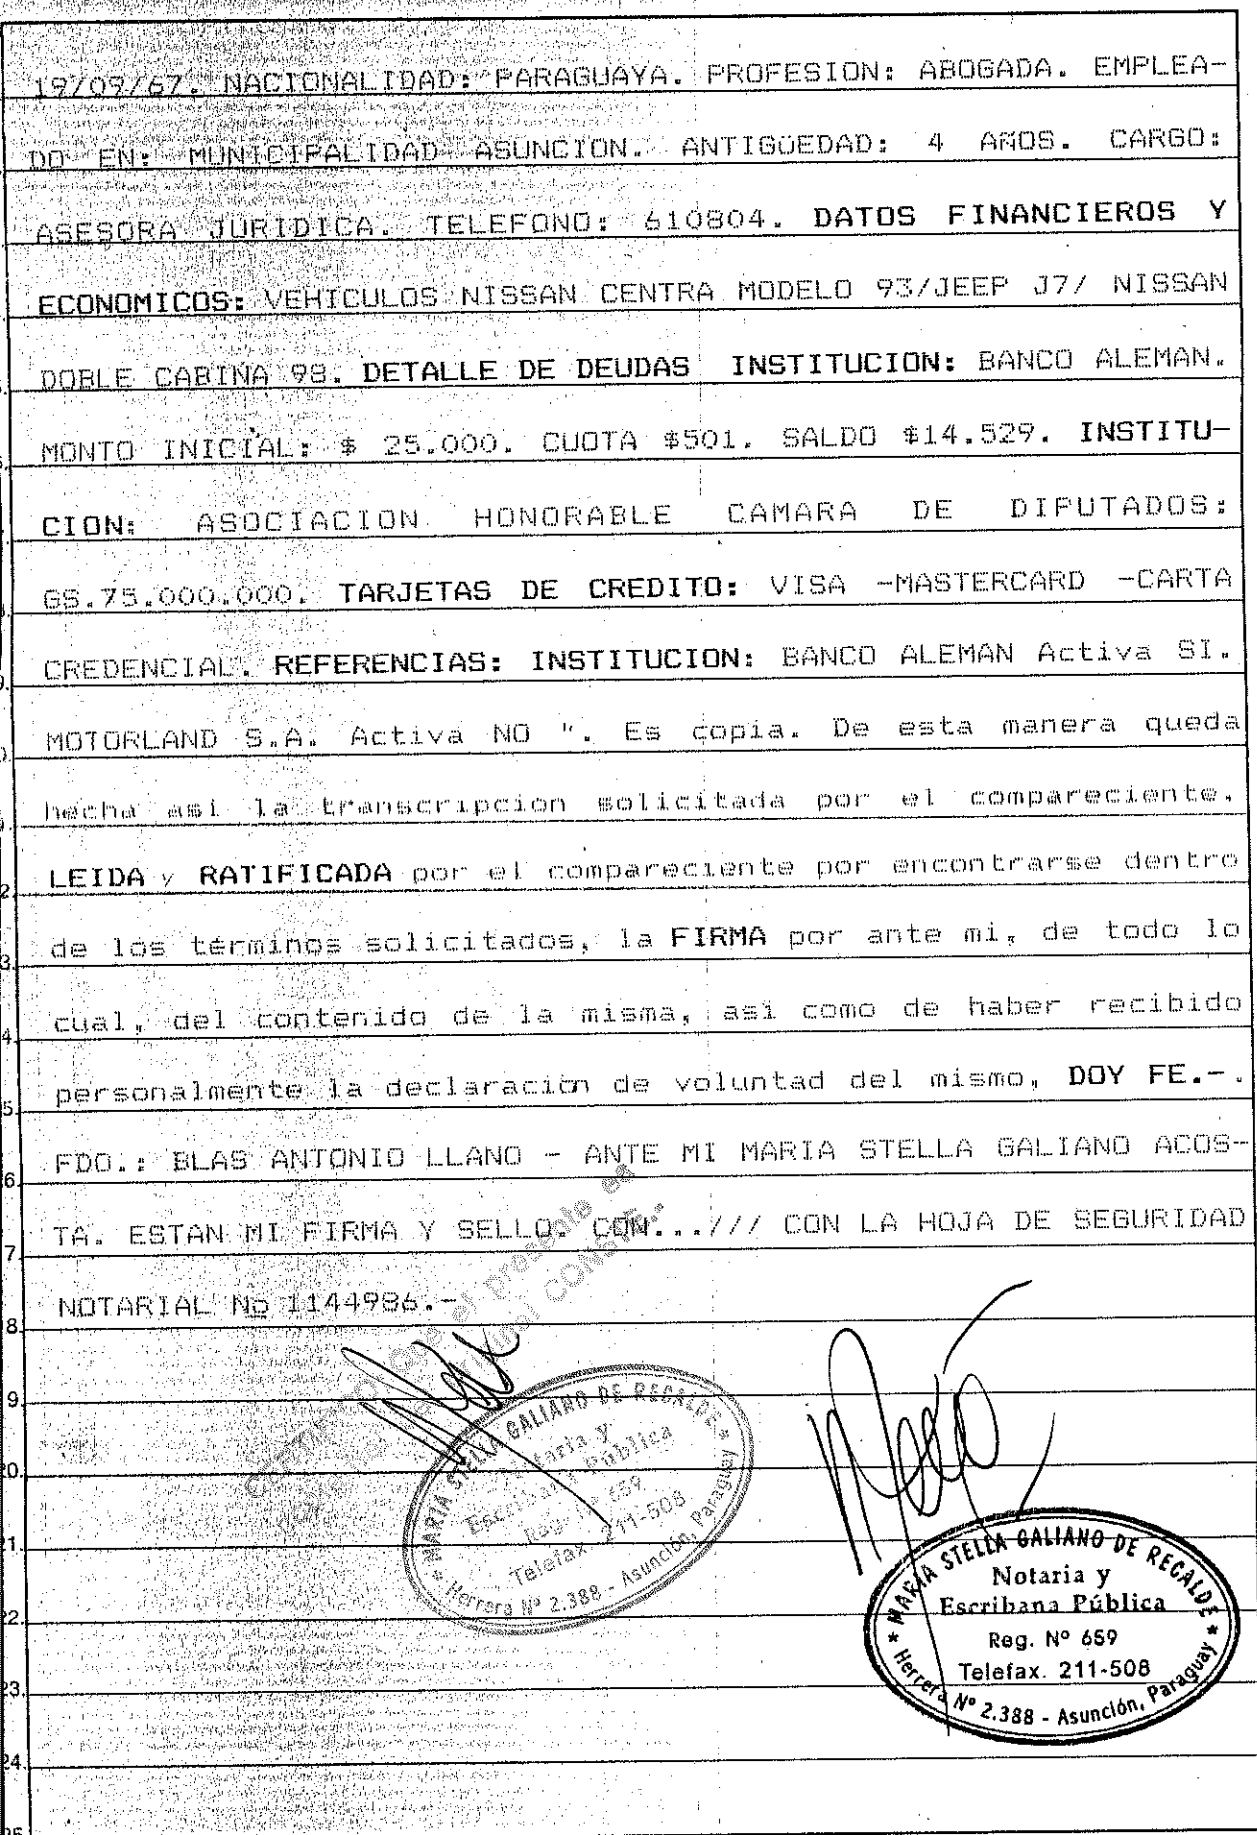 19/09/67. NACIONALIDAD: PARAGUAYA. PROFESION: ABOGADA. EMPLEA-
DO EN: MUNICIPALIDAD ASUNCION. ANTIGÜEDAD: 4 AÑOS. CARGO:
ASESORA JURIDICA. TELEFONO: 610804. DATOS FINANCIEROS Y
ECONOMICOS: VEHICULOS NISSAN CENTRA MODELO 93/JEEP J7/ NISSAN
DOBLE CABINA 98. DETALLE DE DEUDAS INSTITUCION: BANCO ALEMAN.
MONTO INICIAL: $ 25.000. CUOTA $501. SALDO $14.529. INSTITU-
CION: ASOCIACION HONORABLE CAMARA DE DIPUTADOS:
GS.75.000.000. TARJETAS DE CREDITO: VISA -MASTERCARD -CARTA
CREDENCIAL. REFERENCIAS: INSTITUCION: BANCO ALEMAN Activa SI.
MOTORLAND S.A. Activa NO ". Es copia. De esta manera queda
hecha así la transcripción solicitada por el compareciente.
LEIDA y RATIFICADA por el compareciente por encontrarse dentro
de los términos solicitados, la FIRMA por ante mi, de todo lo
cual, del contenido de la misma, así como de haber recibido
personalmente la declaración de voluntad del mismo, DOY FE.-.
FDO.: BLAS ANTONIO LLANO - ANTE MI MARIA STELLA GALIANO ACOS-
TA. ESTAN MI FIRMA Y SELLO. CON.../// CON LA HOJA DE SEGURIDAD
NOTARIAL No 1144986.-
que el presente es
CONSTE.
MARIA STELLA GALIANO DE RECALDE
Notaria y
Escribana Pública
Reg. Nº 659
Telefax. 211-508
Herrera Nº 2.388 - Asunción, Paraguay
MARIA STELLA GALIANO DE RECALDE
Notaria y
Escribana Pública
Reg. Nº 659
Telefax. 211-508
Herrera Nº 2.388 - Asunción, Paraguay